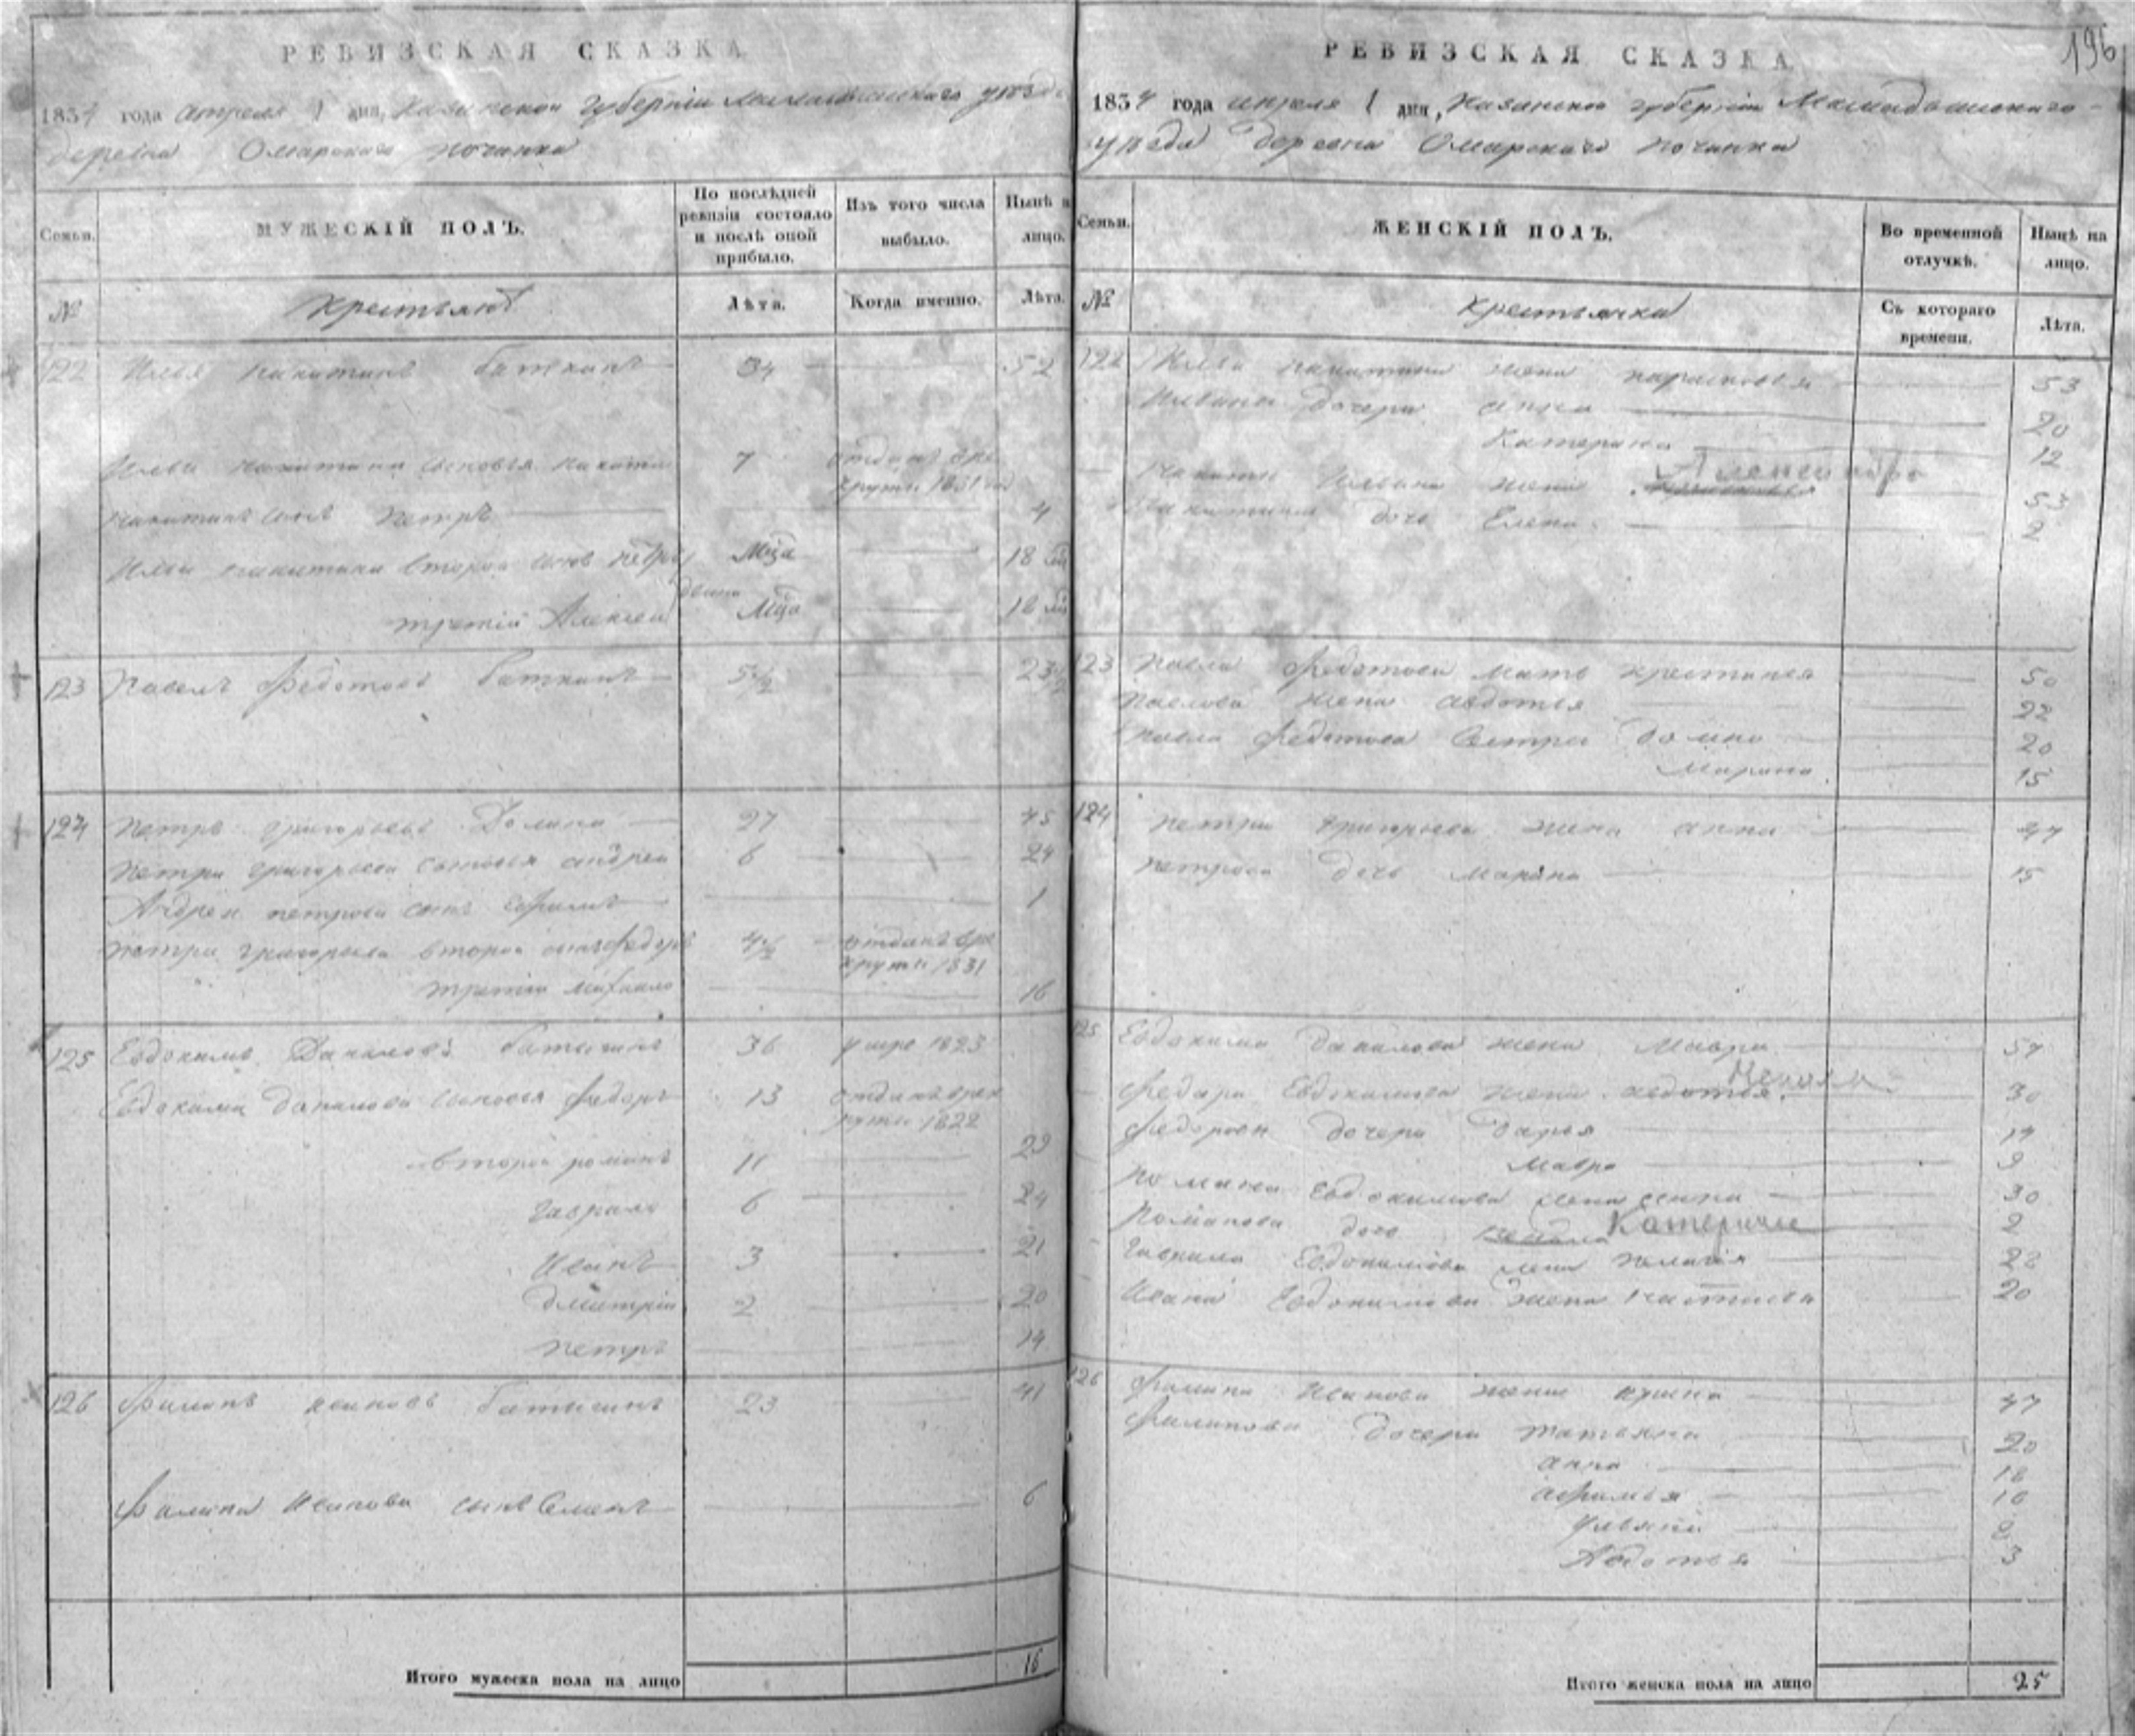 РЕВИЗСКАЯ СКАЗКА
1834 года апреля 1 дня, Казанской губернiи Мамадышскаго уезда
деревни Омарскаго починка
Семьи.
МУЖЕСКIЙ ПОЛЪ.
По послѣдней ревизiи состояло и послѣ оной прибыло.
Изъ того числа выбыло.
Нынѣ на лицо.
№
Крестьянъ
Лѣта.
Когда именно.
Лѣта.
122 Илья Никитинъ 34 52
Ильи Никитина сыновья Никита 7 отданъ в рекруты 1831
Никитинъ сынъ Петръ 4
Ильи Никитина второй сынъ Петръ 18
третiй Алексей 18
123 Павелъ Федотовъ 5½ 23½
124 Петръ Григорьевъ 27 45
Петра Григорьева сыновья Андрей 6 24
Андрея Петрова сынъ Ефимъ 1
Петра Григорьева второй сынъ Федоръ 4½ отданъ в рекруты 1831
третiй Михайло 16
125 Евдокимъ Даниловъ Батыгинъ 36 умре 1823
Евдокима Данилова сыновья Федоръ 13 отданъ в рекруты 1822
второй Романъ 11 29
Гаврило 6 24
Иванъ 3 21
Дмитрiй 2 20
Петръ 14
126 Ивановъ Батыгинъ 23 41
Иванова сынъ Семенъ 6
Итого мужеска пола на лицо 16
196
РЕВИЗСКАЯ СКАЗКА
1834 года апреля 1 дня, Казанской губернiи Мамадышскаго
уезда деревни Омарскаго починка
Семьи.
ЖЕНСКIЙ ПОЛЪ.
Во временной отлучкѣ.
Нынѣ на лицо.
№
Крестьянки
Съ котораго времени.
Лѣта.
122 Ильи Никитина жена Парасковья 53
Ильины дочери Анна 20
Катерина 12
Никиты Ильина жена 53
Никитина дочь Елена 2
123 Павла Федотова мать 50
Павлова жена Авдотья 22
Павла Федотова сестры Домна 20
Марина 15
124 Петра Григорьева жена Анна 47
Петрова дочь Марина 15
125 Евдокима Данилова жена Мавра 57
Федора Евдокимова жена Авдотья 30
Федоровы дочери Дарья 14
Мавра 9
Романа Евдокимова жена 30
Романова дочь Катерина 2
Гаврила Евдокимова жена 22
Ивана Евдокимова жена Настасья 20
126 Иванова жена 47
дочери Татьяна 20
Анна 18
Афимья 10
Ульяна 8
Авдотья 3
Итого женска пола на лицо 25